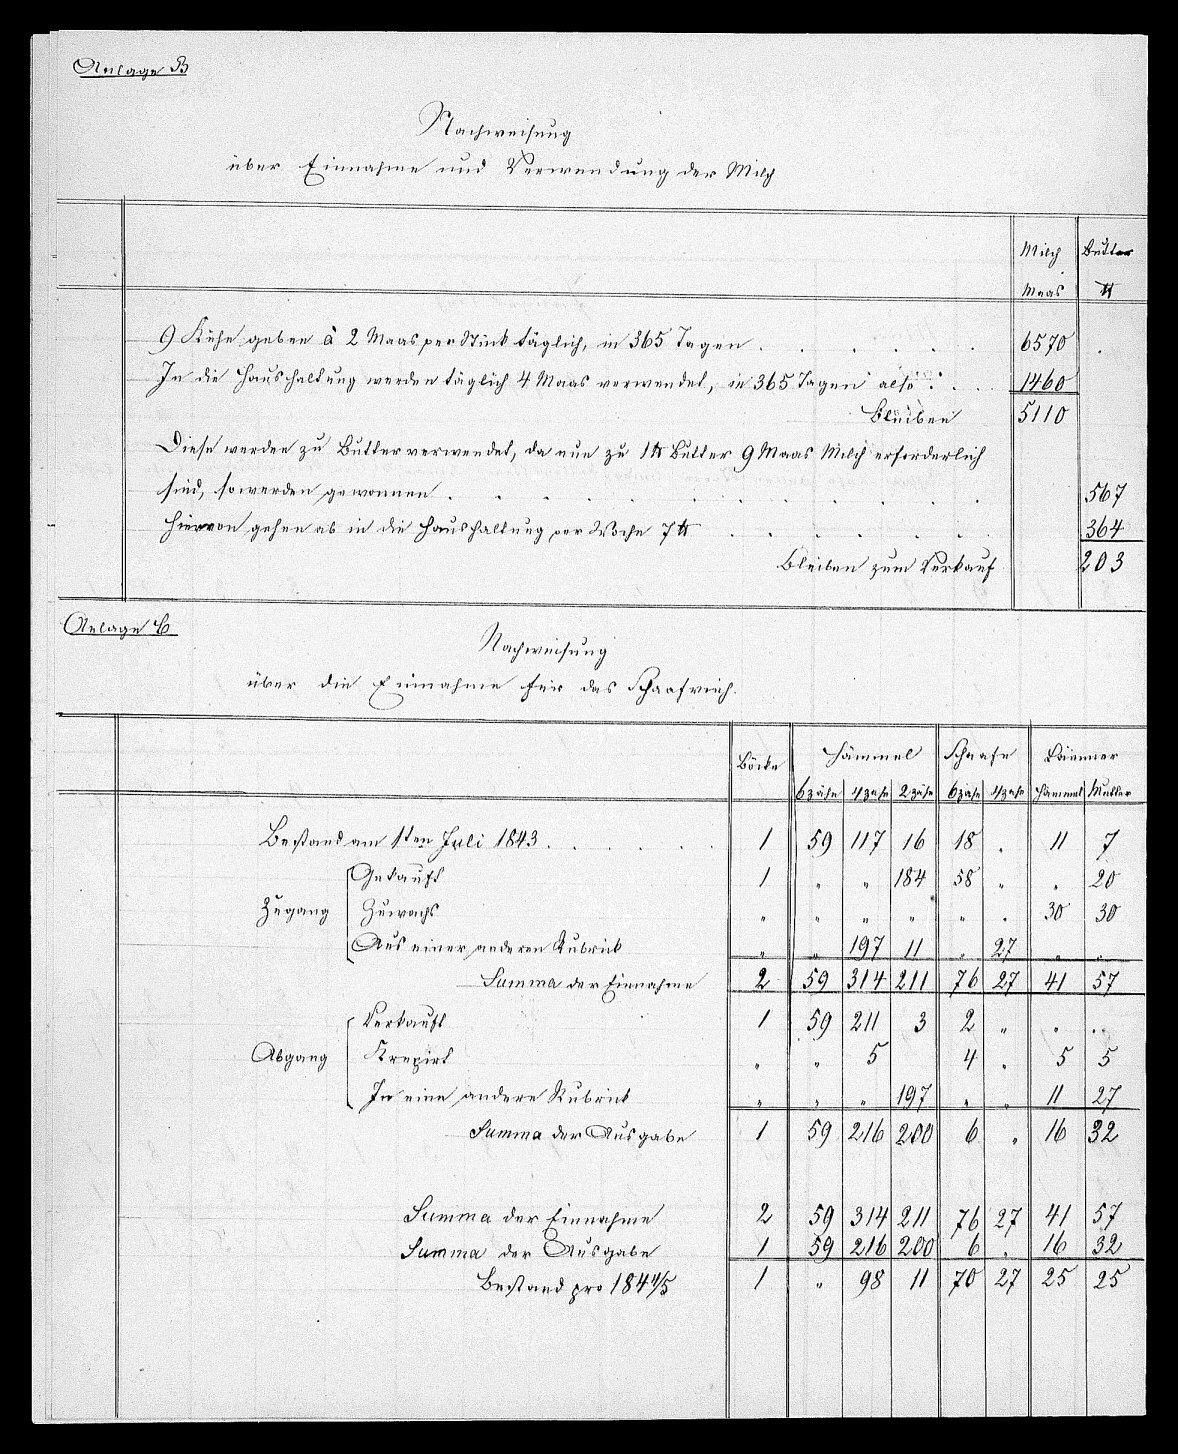 Anlage B
Nachweisung
über Einnahme und Verwendung der Milch
Milch Butter
Maas ℔
9 Kühe geben à 2 Maas per Stück täglich, in 365 Tagen . . . . . . 6570 .
In die Haushaltung werden täglich 4 Maas verwendet, in 365 Tagen also . . . 1460
Bleiben 5110
Diese werden zu Butter verwendet, da nun zu 1 ℔ Butter 9 Maas Milch erforderlich
sind, so werden gewonnen . . . . . . . . . . . . 567
Hiervon gehen ab in die Haushaltung per Woche 7 ℔ . . . . . . 364
Bleiben zum Verkauf 203
Anlage C
Nachweisung
über die Einnahme für das Schaafvieh.
Böcke Hämmel Schaafe Lämmer
6zähn 4zähn 2zähn 6zähn 4zähn Hämmel Mutter
Bestand am 1ten Juli 1843 . . . . . 1 59 117 16 18 . 11 7
Gekauft 1 " " 184 58 " " 20
Zugang Zuwachs " " " " " " 30 30
Aus einer anderen Rubrick " " 197 11 " 27 " "
Summa der Einnahme 2 59 314 211 76 27 41 57
Verkauft 1 59 211 3 2 " . ..
Abgang Krepirt " " 5 4 . 5 5
In eine andere Rubrick " " " 197 " " 11 27
Summa der Ausgabe 1 59 216 200 6 " 16 32
Summa der Einnahme 2 59 314 211 76 27 41 57
Summa der Ausgabe 1 59 216 200 6 . 16 32
Bestand pro 184 4/5 1 " 98 11 70 27 25 25